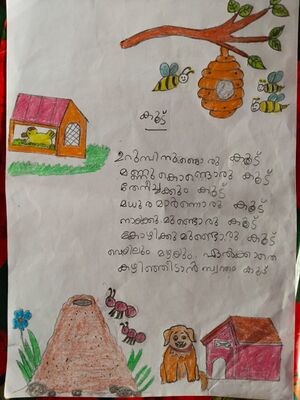 കൂട്
ഉറുമ്പിനുണ്ടൊരു കൂട്
മണ്ണുകൊണ്ടൊരു കൂട്
തേനീച്ചക്കും കൂട്
മധുരമാർന്നൊരു കൂട്
നായക്കുമുണ്ടൊരു കൂട്
കോഴിക്കുമുണ്ടൊരു കൂട്
വെയിലും മഴയും ഏൽക്കാതെ
കഴിഞ്ഞിടാൻ സ്വന്തം കൂട്